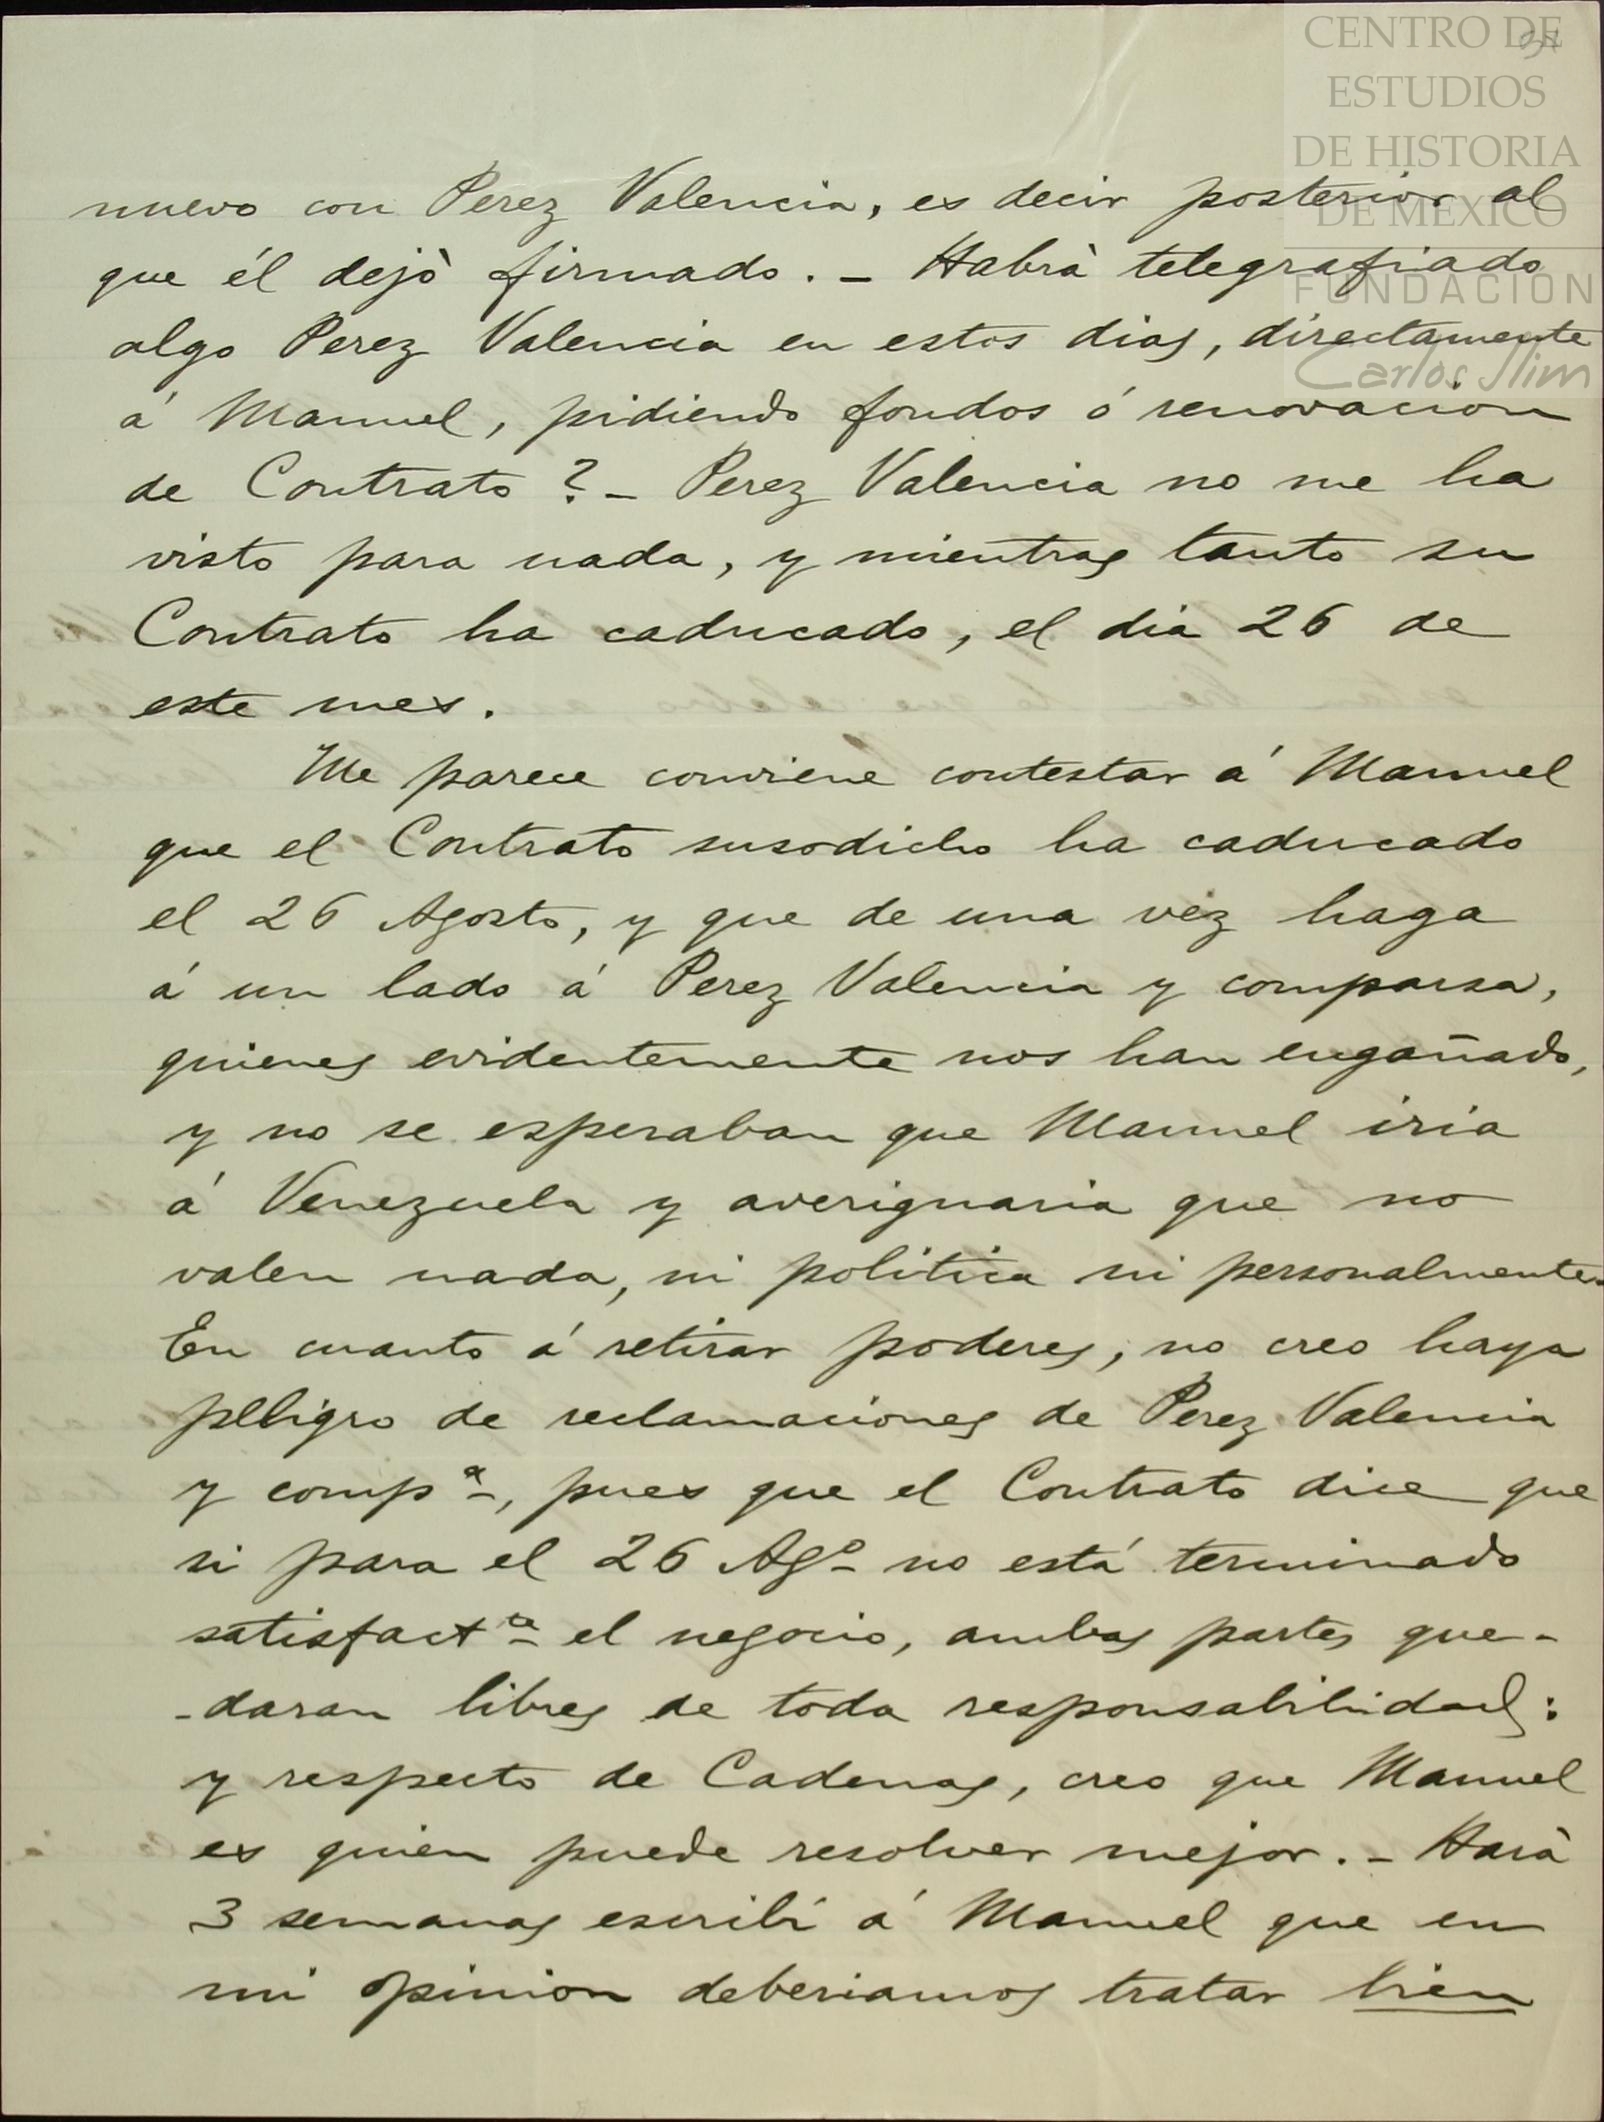 CENTRO DE
ESTUDIOS
DE HISTORIA
DE MEXICO
FUNDACION
Carlos Slim
nuevo con Perez Valencia, es decir posterior al
que él dejò firmado. _ Habrà telegrafiado
algo Perez Valencia en estos dias, directamente
á Manuel, pidiendo fondos ó renovacion
de Contrato ? _ Perez Valencia no me ha
visto para nada, y mientras tanto su
Contrato ha caducado, el dia 26 de
este mes.
Me parece conviene contestar á Manuel
que el Contrato susodicho ha caducado
el 26 Agosto, y que de una vez haga
á un lado á Perez Valencia y comparsa,
quienes evidentemente nos han engañado,
y no se esperaban que Manuel iria
á Venezuela y averiguaria que no
valen nada, ni politica ni personalmente.
En cuanto á retirar poderes, no creo haya
pelligro de reclamaciones de Perez Valencia
y compª, pues que el Contrato dice que
si para el 26 Agº no está terminado
satisfactte el negocio, ambas partes que-
-daran libres de toda responsabilidad:
y respecto de Cadenas, creo que Manuel
es quien puede resolver mejor. _ Harà
3 semanas escribí á Manuel que en
mi opinion deberiamos tratar bien